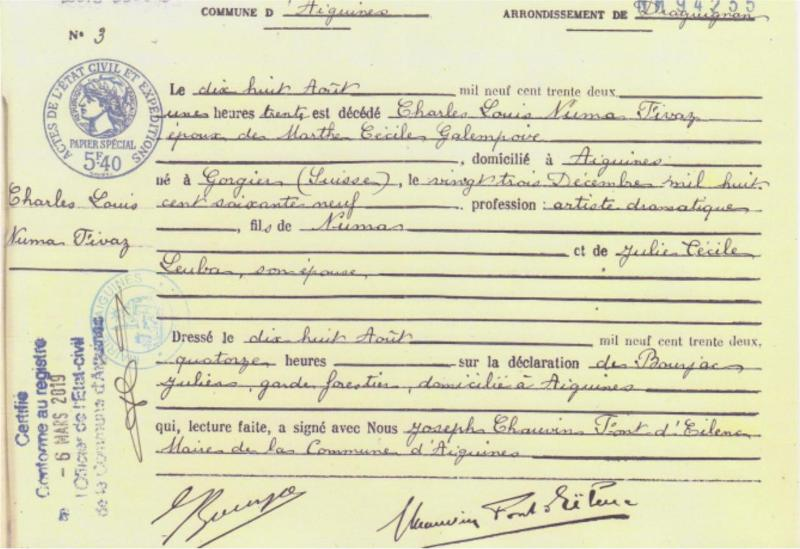 COMMUNE D'Aiguines ARRONDISSEMENT DE Draguignan
N° 3
ACTES DE L'ÉTAT CIVIL ET EXPÉDITIONS
PAPIER SPÉCIAL
5F40
Le dix huit Août mil neuf cent trente deux
une heures trente est décédé Charles Louis Numa Tivaz
époux de Marthe Cécile Galempoix
, domicilié à Aiguines
né à Gorgier (Suisse), le vingt trois Décembre mil huit
cent soixante neuf profession : artiste dramatique
, fils de Numa
et de Julie Cécile
Leuba, son épouse,
Charles Louis
Numa Tivaz
Dressé le dix huit Août mil neuf cent trente deux,
quatorze heures sur la déclaration de Bourjac
Julien, garde forestier, domicilié à Aiguines
qui, lecture faite, a signé avec Nous Joseph Chauvin Font d'Eilenc
Maire de la Commune d'Aiguines
Certifié
Conforme au registre
- 6 MARS 2019
l'Officier de l'Etat-civil
de la Commune d'Aiguines